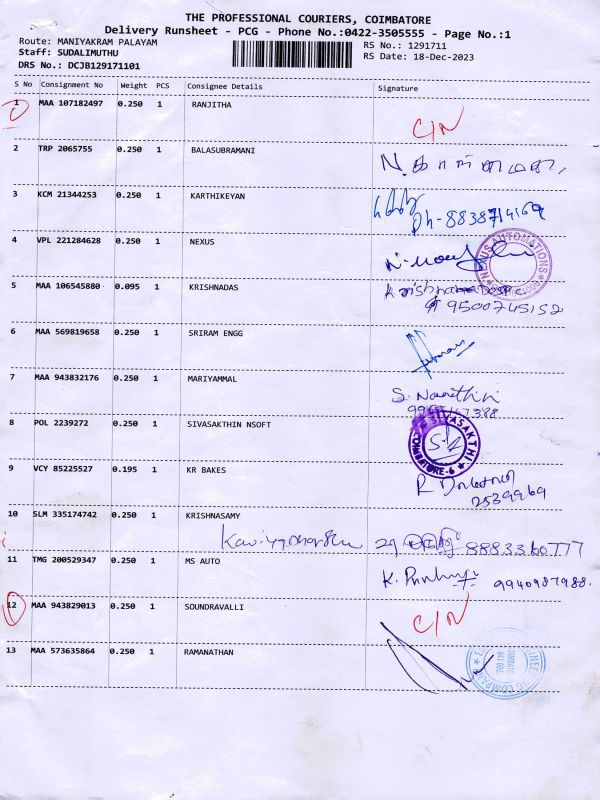 THE PROFESSIONAL COURIERS, COIMBATORE
Delivery Runsheet - PCG - Phone No.:0422-3505555 - Page No.:1
Route: MANIYAKRAM PALAYAM
RS No.: 1291711
Staff: SUDALIMUTHU
RS Date: 18-Dec-2023
DRS No.: DCJB129171101
S No Consignment No Weight PCS Consignee Details Signature
1 MAA 107182497 0.250 1 RANJITHA C/N
2 TRP 2065755 0.250 1 BALASUBRAMANI
3 KCM 21344253 0.250 1 KARTHIKEYAN
Ph-8838714169
4 VPL 221284628 0.250 1 NEXUS
NEXUS AUTOMATIONS
5 MAA 106545880 0.095 1 KRISHNADAS
9500745152
6 MAA 569819658 0.250 1 SRIRAM ENGG
7 MAA 943832176 0.250 1 MARIYAMMAL
8 POL 2239272 0.250 1 SIVASAKTHIN NSOFT
COIMBATORE-6
9 VCY 85225527 0.195 1 KR BAKES
2539969
10 SLM 335174742 0.250 1 KRISHNASAMY
11 TMG 200529347 0.250 1 MS AUTO
9940987988.
12 MAA 943829013 0.250 1 SOUNDRAVALLI C/N
13 MAA 573635864 0.250 1 RAMANATHAN